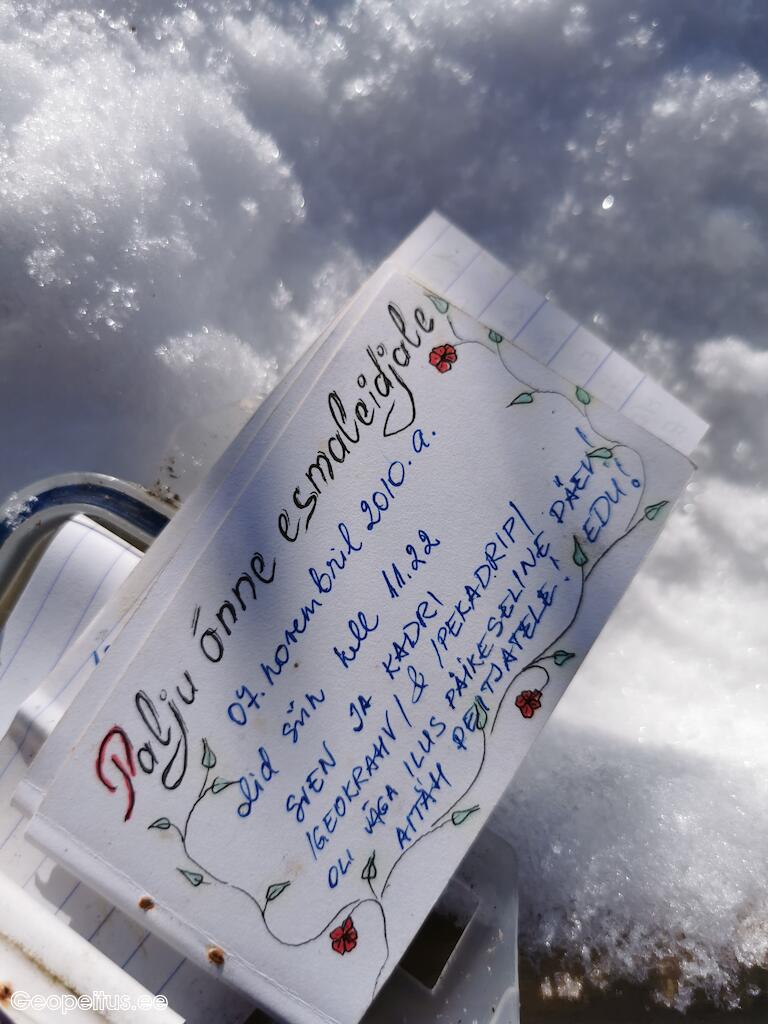 Palju õnne esmaleidjale
07. novembril 2010. a.
olid siin kell 11.22
SVEN JA KADRI
/GEOKRAHV/ & /PEKADRIPI/
OLI VÄGA ILUS PÄIKESELINE PÄEV!
AITÄH PEITJATELE! EDU!
Geopeitus.ee